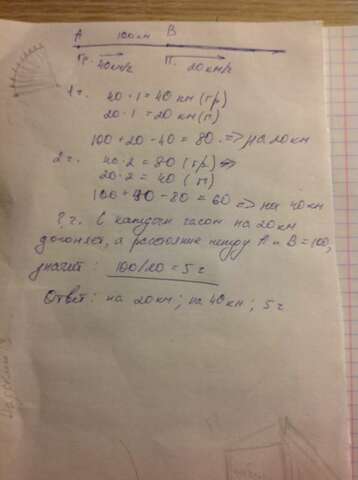 A 100км B
Гр. 40км/ч П. 20км/ч
1 ч. 40 · 1 = 40 км (гр)
20 · 1 = 20 км (п)
100 + 20 - 40 = 80. => на 20км
2 ч. 40 · 2 = 80 (гр) =>
20 · 2 = 40 (п)
100 + 40 - 80 = 60 => на 40км
? ч. С каждым часом на 20км
догоняет, а расстояние между A и B = 100,
значит: 100/20 = 5 ч
Ответ: на 20км; на 40км; 5 ч